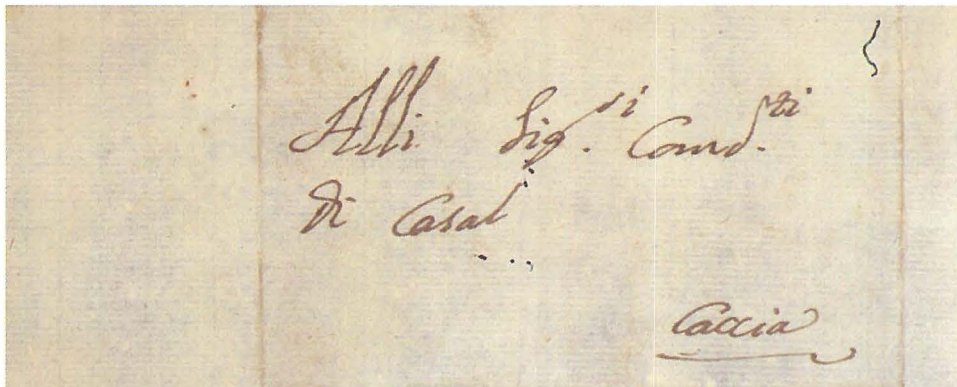 Alli Sig.ri Comd.ti
di Casal
Caccia